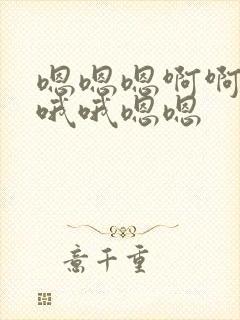 嗯嗯嗯啊啊
哦哦嗯嗯
意千重